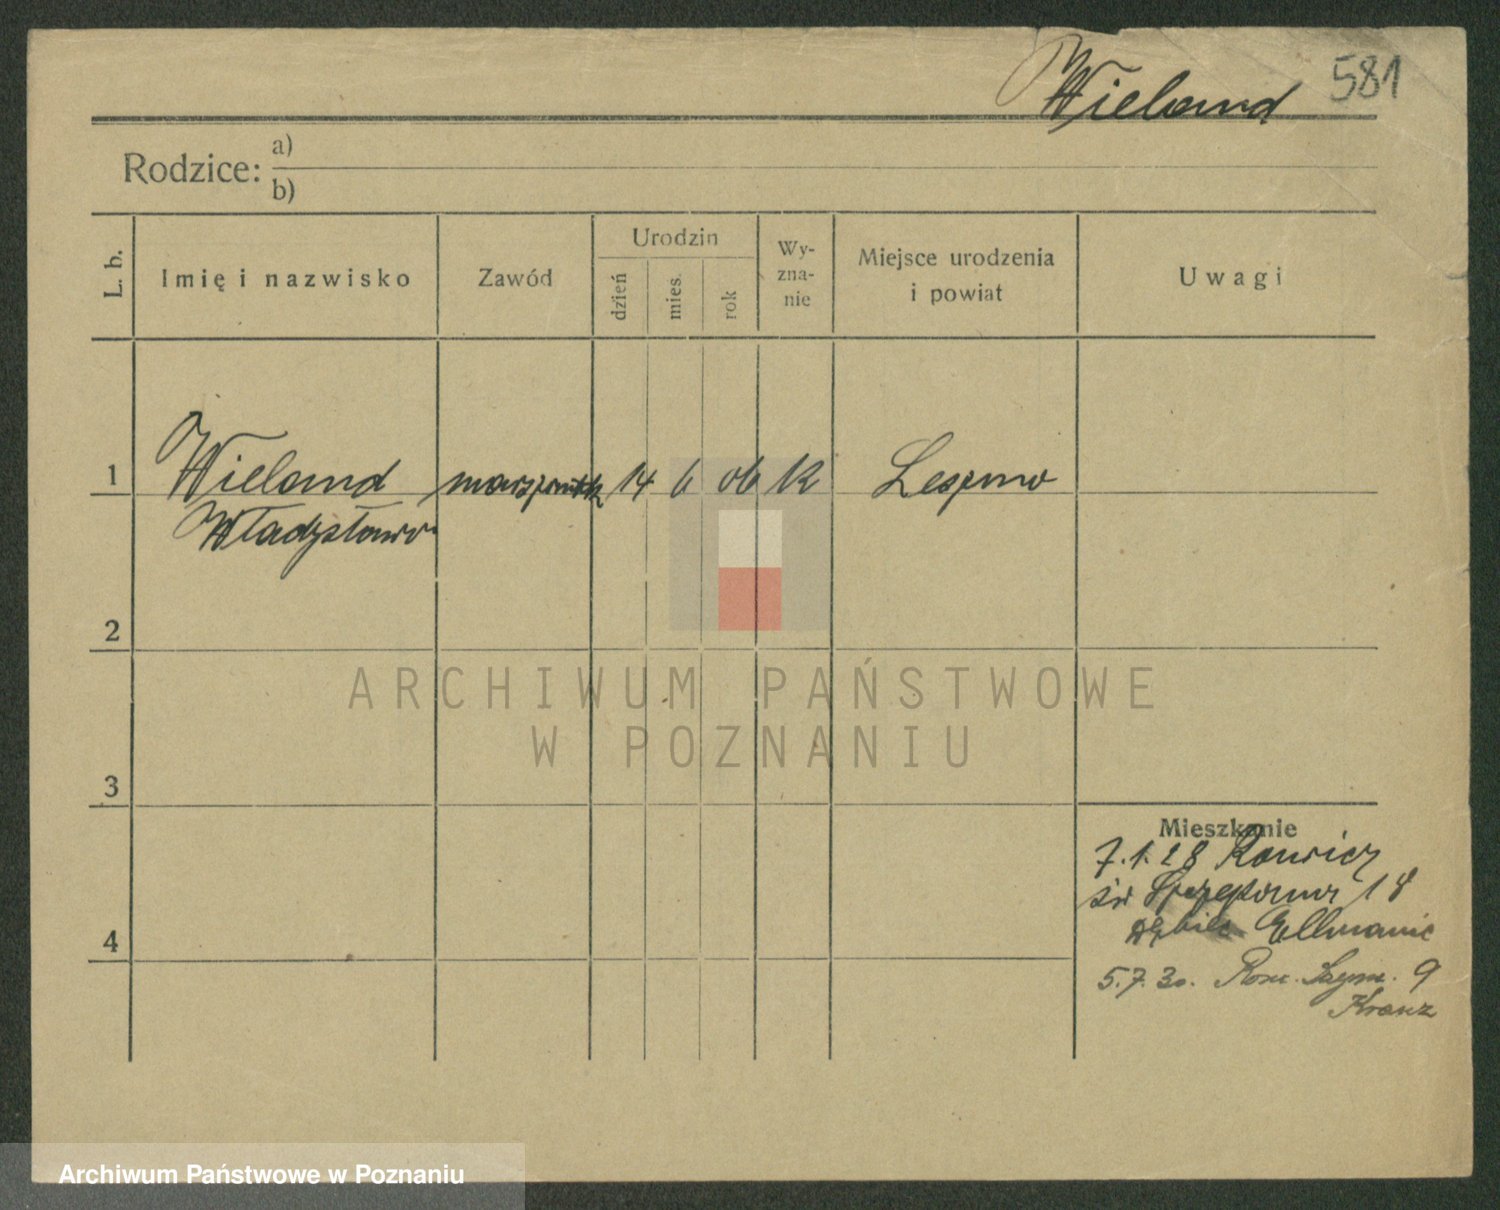 Wieland 581
Rodzice: a)
b)
L. b. Imię i nazwisko Zawód Urodzin dzień mies. rok Wy-zna-nie Miejsce urodzenia i powiat Uwagi
1 Wieland 14 6 06 K Leszno
Władysław
2
3
4
Mieszkanie
7.1.28 Rawicz
św 18
Ellmanic
5.7.30. Szym. 9
Kranz
ARCHIWUM PAŃSTWOWE
W POZNANIU
Archiwum Państwowe w Poznaniu